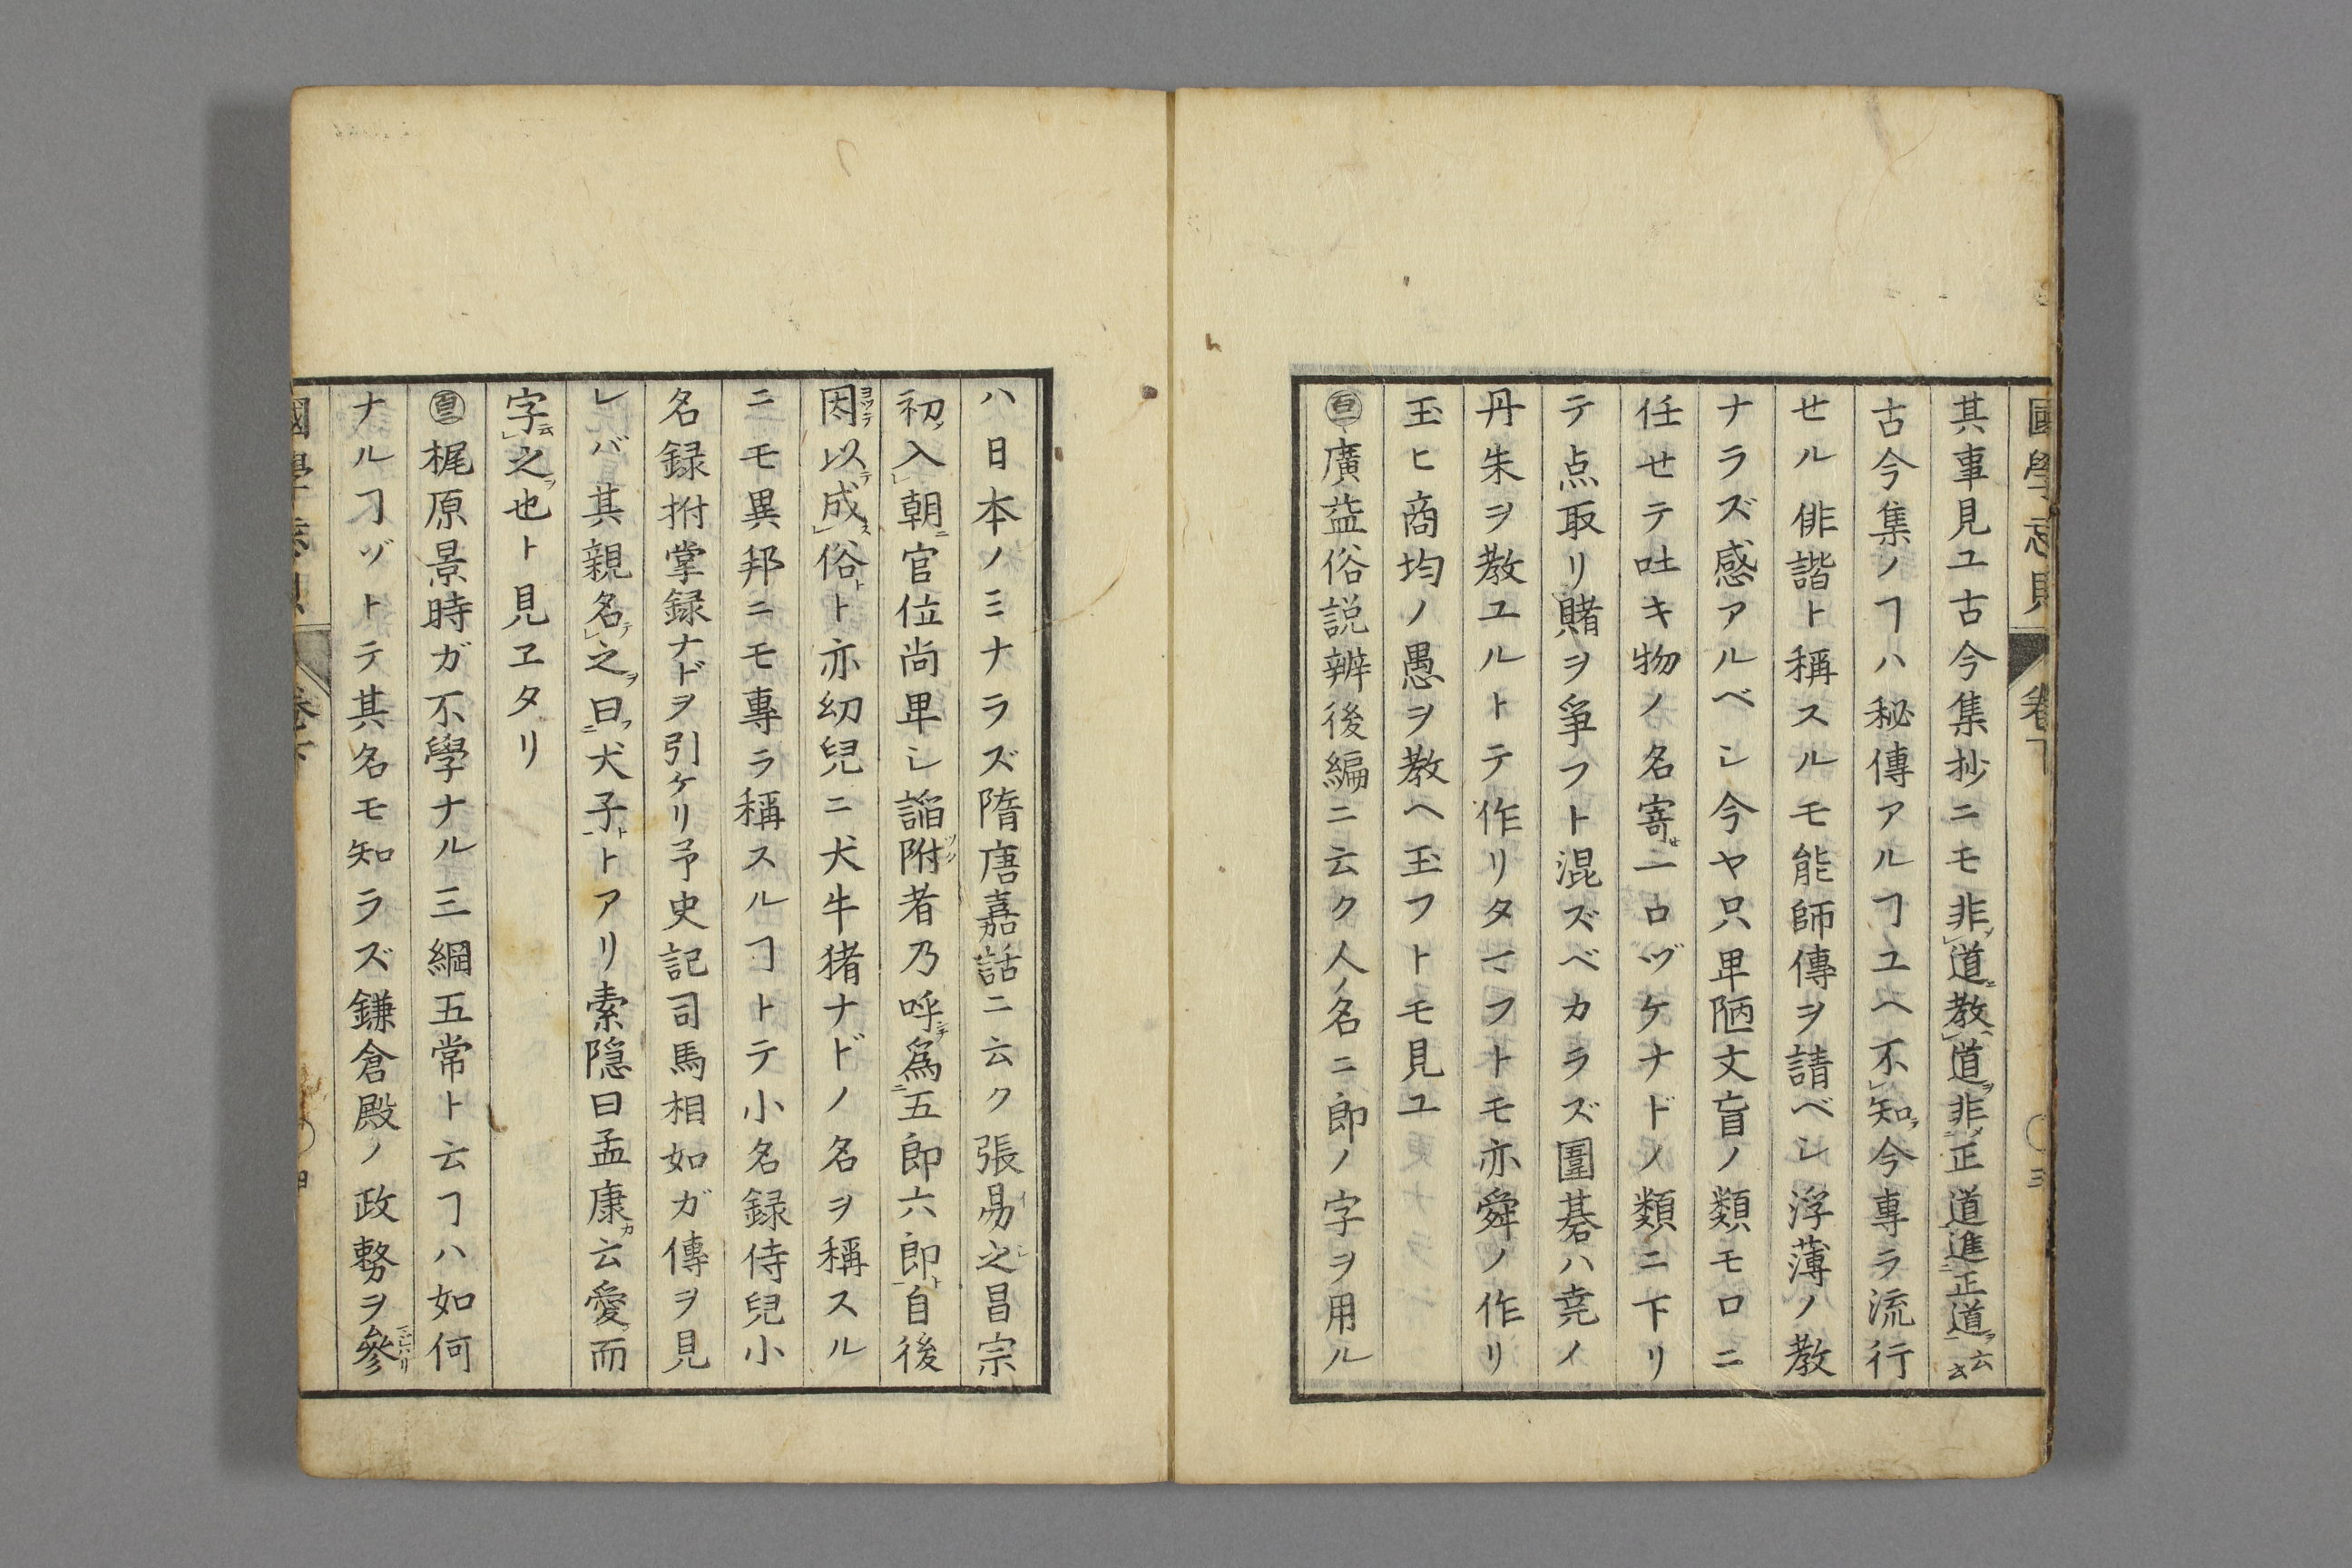 國學忘貝 卷下 三
其事見ユ古今集抄ニモ非道教道非正道進正道云々
古今集ノヿハ秘傳アルヿユヘ不知今專ラ流行
せル俳諧ト稱スルモ能師傳ヲ請ベシ浮薄ノ教
ナラズ感アルベシ今ヤ只卑陋文盲ノ類モロニ
任せテ吐キ物ノ名寄せ一ロヅケナドノ類ニ下リ
テ点取リ賭ヲ爭フト混ズベカラズ圍碁ハ堯ノ
丹朱ヲ教ユルトテ作リタマフトモ亦舜ノ作リ
玉ヒ商均ノ愚ヲ教ヘ玉フトモ見ユ
廣益俗説辨後編ニ云ク人ノ名ニ郎ノ字ヲ用ル
ハ日本ノミナラズ隋唐嘉話ニ云ク張易之昌宗
初入朝官位尚卑シ諂附者乃呼爲五郎六郎自後
因以成俗ト亦幼兒ニ犬牛猪ナドノ名ヲ稱スル
ニモ異邦ニモ專ラ稱スルヿトテ小名録侍兒小
名録拊掌録ナドヲ引ケリ予史記司馬相如ガ傳ヲ見
レバ其親名之曰犬子トアリ索隠曰孟康云愛而
字之也ト見ヱタリ
梶原景時ガ不學ナル三綱五常ト云ヿハ如何
ナルヿゾトテ其名モ知ラズ鎌倉殿ノ政務ヲ參